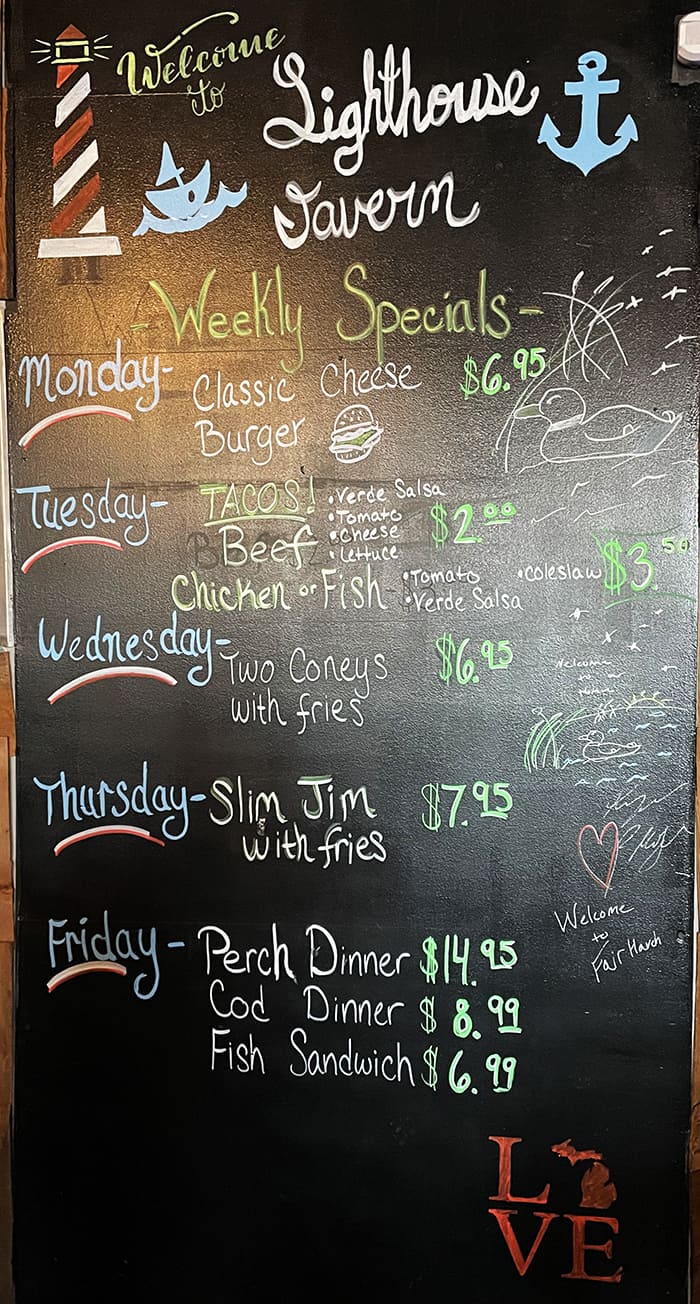 Welcome
to
Lighthouse
Tavern
- Weekly Specials -
Monday- Classic Cheese $6.95
Burger
Tuesday- TACOS! • Verde Salsa $2.00
• Tomato
Beef • Cheese
• Lettuce
Chicken or Fish • Tomato • coleslaw $3.50
• Verde Salsa
Wednesday- Two Coneys $6.95
with fries
Welcome
to
Thursday- Slim Jim $7.95
with fries
Welcome
to
Fair Haven
Friday- Perch Dinner $14.95
Cod Dinner $8.99
Fish Sandwich $6.99
L
VE